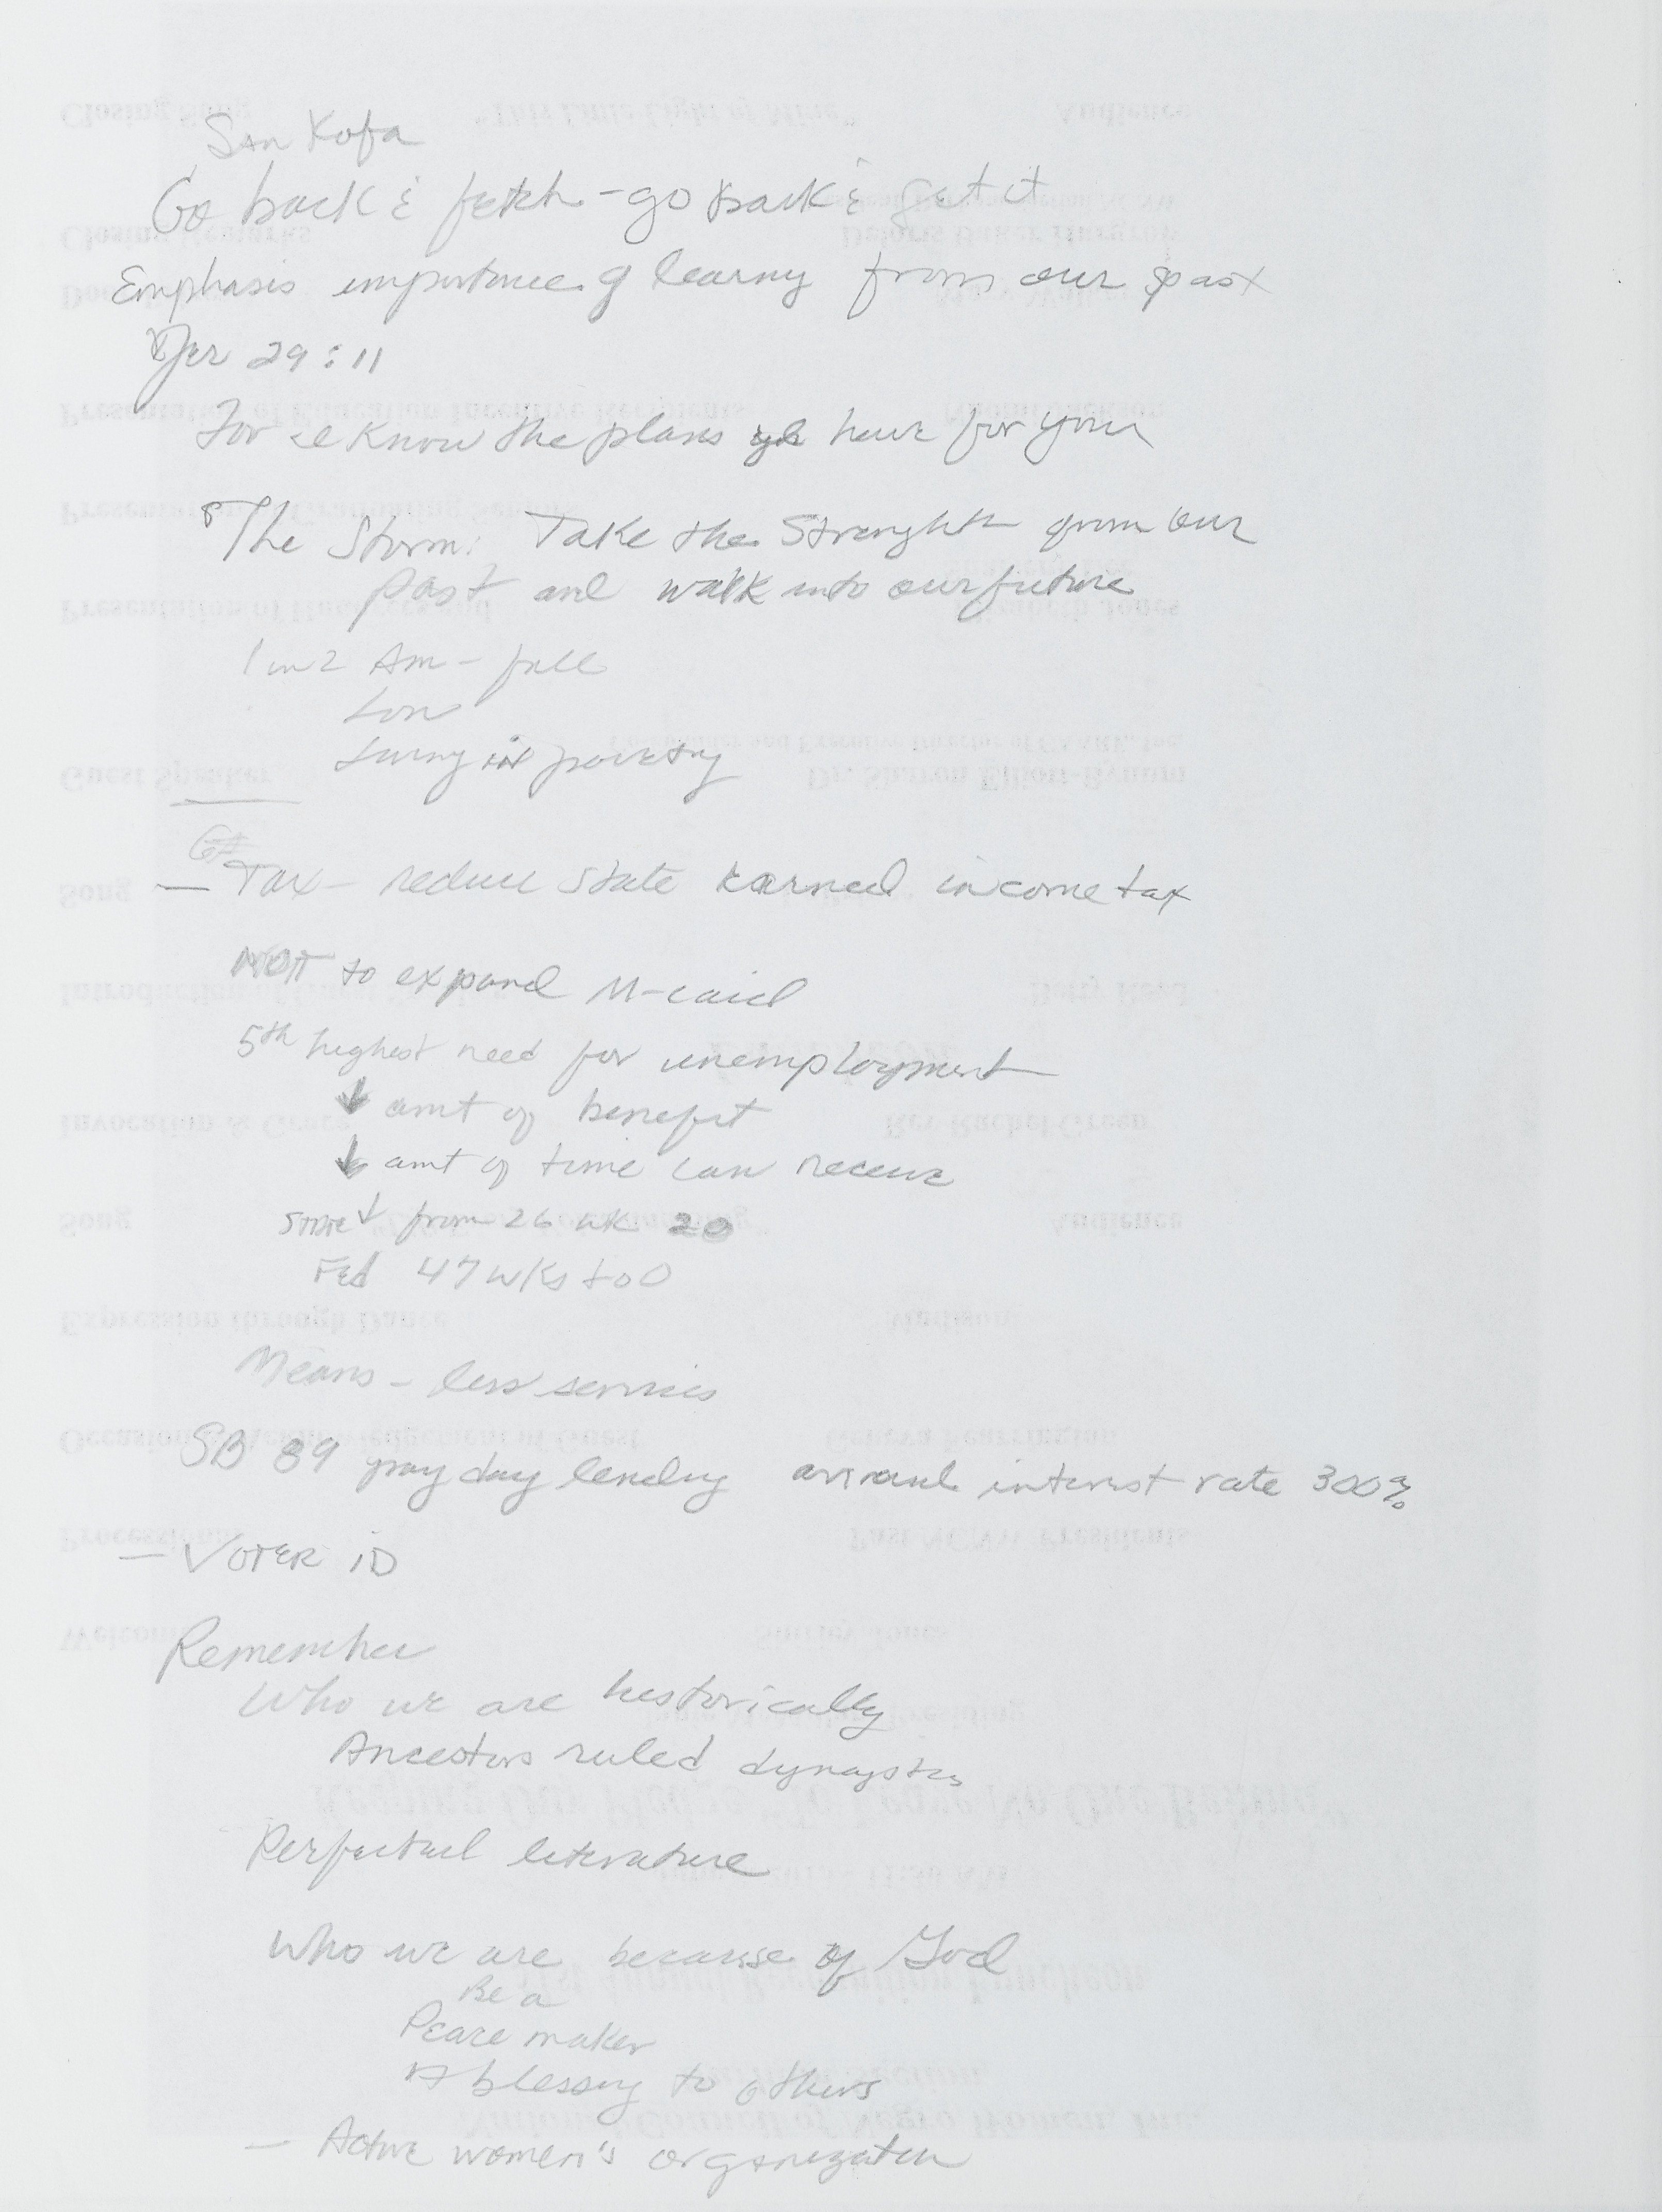 San Kofa
Go back & fetch - go back & get it
Emphasis importance of learng from our past
Jer 29:11
For I know the plans have for you
The Storm: Take the Strenght from our
past and walk into our future
1 in 2 Am - fall
Low
Living in poverty
— Tax - reduce State Earned income tax
NOT to expand M-caid
5th highest need for unemployment
↓ amt of benefit
↓ amt of time can receive
State ↓ from 26 wk 20
Fed 47 wks to 0
Means - less services
SB 89 pay day lending annual interest rate 300%
— VOTER iD
Remember
Who we are historically
Ancestors ruled dynasties
Perfected literature
Who we are because of God
Be a
Peace maker
A blessing to others
— Active women's organization